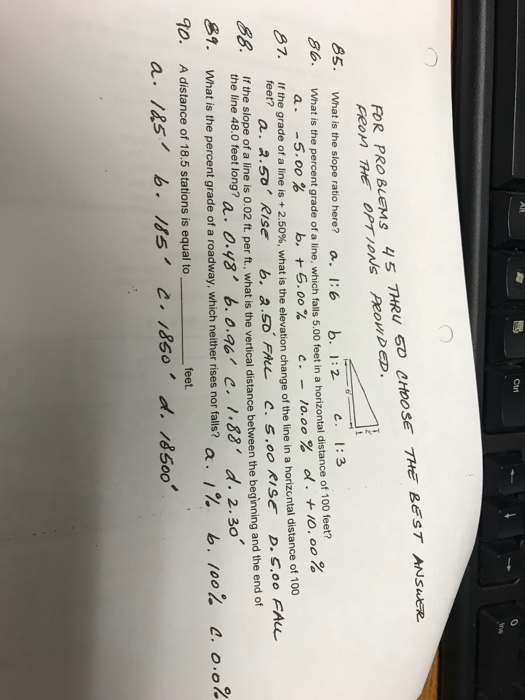 FOR PROBLEMS 45 THRU 50 CHOOSE THE BEST ANSWER
FROM THE OPTIONS PROVIDED.
85. What is the slope ratio here? a. 1:6 b. 1:2 c. 1:3
6'
2'
86. What is the percent grade of a line, which falls 5.00 feet in a horizontal distance of 100 feet?
a. -5.00% b. +5.00% c. -10.00% d. +10.00%
87. If the grade of a line is + 2.50%, what is the elevation change of the line in a horizontal distance of 100
feet? a. 2.50' RISE b. 2.50' FALL c. 5.00 RISE D. 5.00 FALL
88. If the slope of a line is 0.02 ft. per ft., what is the vertical distance between the beginning and the end of
the line 48.0 feet long? a. 0.48' b. 0.96' c. 1.88' d. 2.30'
89. What is the percent grade of a roadway, which neither rises nor falls? a. 1% b. 100% c. 0.0%
90. A distance of 18.5 stations is equal to ________ feet.
a. 18.5' b. 185' c. 1850' d. 18500'
Alt
Ctrl
0
Ins